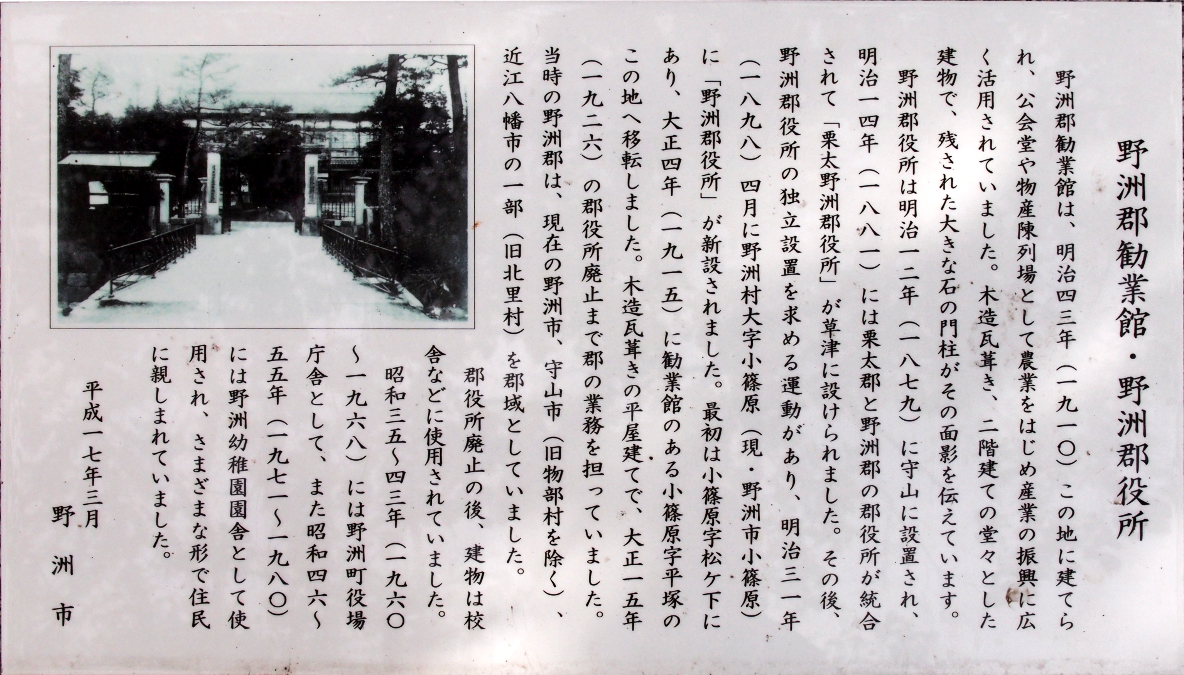 野洲郡勧業館・野洲郡役所
野洲郡勧業館は、明治四三年（一九一〇）この地に建てら
れ、公会堂や物産陳列場として農業をはじめ産業の振興に広
く活用されていました。木造瓦葺き、二階建ての堂々とした
建物で、残された大きな石の門柱がその面影を伝えています。
野洲郡役所は明治一二年（一八七九）に守山に設置され、
明治一四年（一八八一）には栗太郡と野洲郡の郡役所が統合
されて「栗太野洲郡役所」が草津に設けられました。その後、
野洲郡役所の独立設置を求める運動があり、明治三一年
（一八九八）四月に野洲村大字小篠原（現・野洲市小篠原）
に「野洲郡役所」が新設されました。最初は小篠原字松ケ下に
あり、大正四年（一九一五）に勧業館のある小篠原字平塚の
この地へ移転しました。木造瓦葺きの平屋建てで、大正一五年
（一九二六）の郡役所廃止まで郡の業務を担っていました。
当時の野洲郡は、現在の野洲市、守山市（旧物部村を除く）、
近江八幡市の一部（旧北里村）を郡域としていました。
郡役所廃止の後、建物は校
舎などに使用されていました。
昭和三五～四三年（一九六〇
～一九六八）には野洲町役場
庁舎として、また昭和四六～
五五年（一九七一～一九八〇）
には野洲幼稚園園舎として使
用され、さまざまな形で住民
に親しまれていました。
平成一七年三月
野洲市